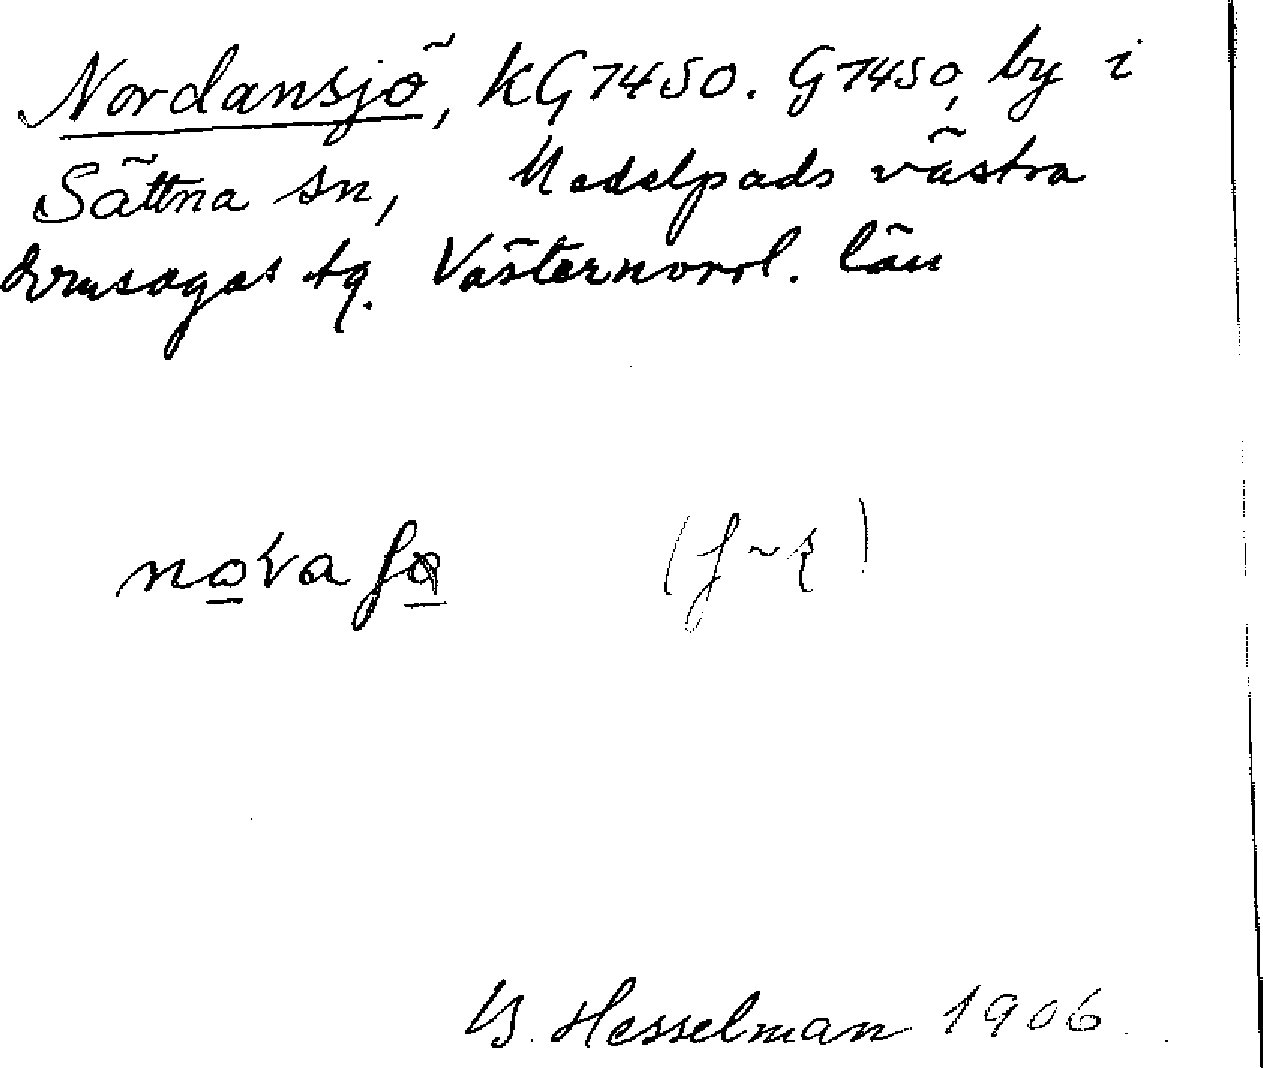 Nordansjö, KG7450. G7450, by i
Sättna sn, Medelpads västra
domsagas tg. Västernorrl. län
B. Hesselman 1906